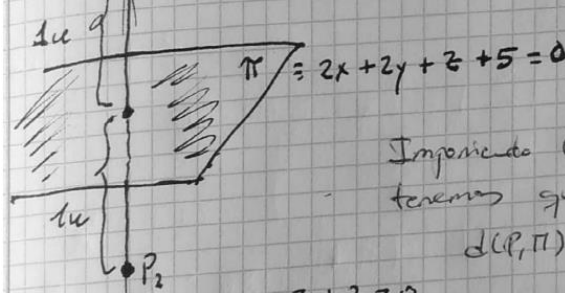 1u
π ≡ 2x + 2y + z + 5 = 0
Imponiendo
tenemos
1u
d(P, π)
P₂